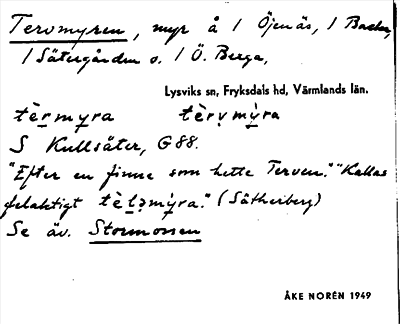 Tervmyren, myr å 1 Öjenäs, 1 Backa,
1 Sätergården o. 1 Ö. Berga,
Lysviks sn, Fryksdals hd, Värmlands län.
tèr̤myra tèrṿmỳra
S Kullsäter, G88.
"Efter en finne som hette Terven." "Kallas
felaktigt tèt̤əmỳra." (Sätherberg)
Se äv. Stormossen
ÅKE NORÉN 1949